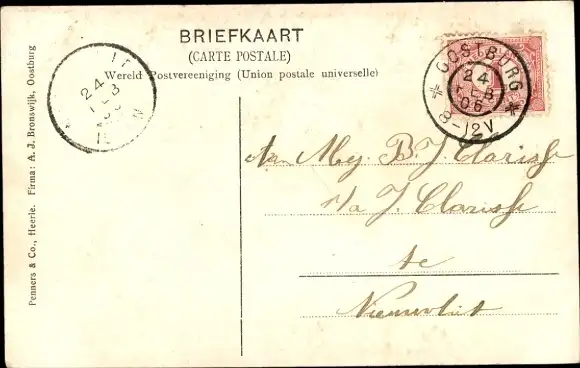 BRIEFKAART
(CARTE POSTALE)
Wereld Postvereeniging (Union postale universelle)
OOSTBURG
24
FEB
06
8-12V
24
Aan Mej. B. J. Clarisse
p/a J. Clarisse
te
Nieuwvliet
Penners & Co., Heerle. Firma: A. J. Bronswijk, Oostburg